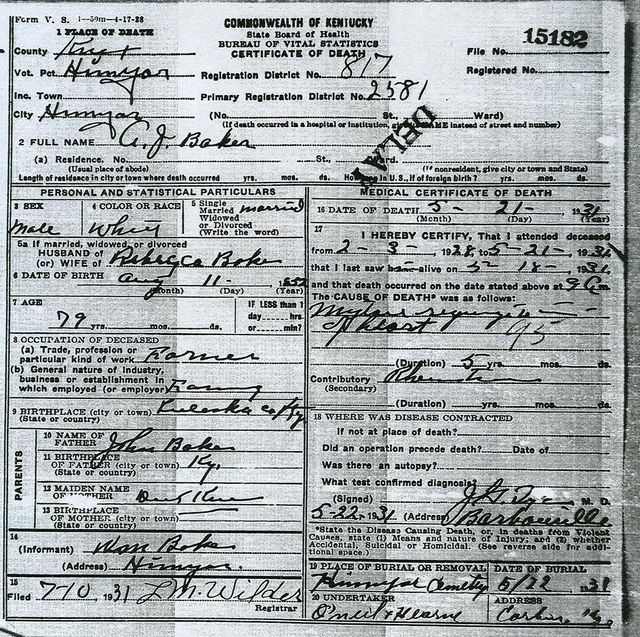 Form V. S. 1-50m-4-17-28
COMMONWEALTH OF KENTUCKY
State Board of Health
BUREAU OF VITAL STATISTICS
CERTIFICATE OF DEATH
1 PLACE OF DEATH
County Knox
Vot. Pct. Hinnyar
Inc. Town
City Hinnyar
File No. 15182
Registered No.
Registration District No. 817
Primary Registration District No. 2581
(No. St., Ward)
(If death occurred in a hospital or institution, NAME instead of street and number)
DELAY
2 FULL NAME A. J. Baker
(a) Residence. No. St.,
(Usual place of abode) (If nonresident, give city or town and State)
Length of residence in city or town where death occurred yrs. mos. ds. How long in U. S., if of foreign birth? yrs. mos. ds.
PERSONAL AND STATISTICAL PARTICULARS
3 SEX
male
4 COLOR OR RACE
White
5 Single
Married
Widowed
or Divorced
(Write the word)
married
5a If married, widowed, or divorced
HUSBAND of
(or) WIFE of Rebecca Baker
6 DATE OF BIRTH Aug 11 1852
(Month) (Day) (Year)
7 AGE
79 yrs. mos. ds.
IF LESS than 1
day hrs.
or min?
8 OCCUPATION OF DECEASED
(a) Trade, profession or
particular kind of work Farmer
(b) General nature of industry,
business or establishment in
which employed (or employer) Farming
9 BIRTHPLACE (city or town) Ky
(State or country)
PARENTS
10 NAME OF
FATHER John Baker
11 BIRTHPLACE
OF FATHER (city or town) Ky.
(State or country)
12 MAIDEN NAME
OF MOTHER
13 BIRTHPLACE
OF MOTHER (city or town)
(State or country)
14
(Informant) Baker
(Address) Hinnyar.
15
Filed 7/10, 1931 L. M. Wilder
Registrar
MEDICAL CERTIFICATE OF DEATH
16 DATE OF DEATH 5- 21- 1931
(Month) (Day) (Year)
17
I HEREBY CERTIFY, That I attended deceased
from 2-3-, 1928, to 5-21-, 1931
that I last saw alive on 5-18-, 1931
and that death occurred on the date stated above at 9 a m.
The CAUSE OF DEATH* was as follows:
of heart 95
(Duration) 5 yrs. mos. ds.
Contributory
(Secondary)
(Duration) yrs. mos. ds.
18 WHERE WAS DISEASE CONTRACTED
If not at place of death?
Did an operation precede death? Date of
Was there an autopsy?
What test confirmed diagnosis?
(Signed) M. D.
5-22, 1931 (Address) Barbourville
*State the Disease Causing Death, or, in deaths from Violent
Causes, state (1) Means and Nature of Injury; and (2) whether
Accidental, Suicidal or Homicidal. (See reverse side for additional
space.)
19 PLACE OF BURIAL OR REMOVAL
Hinnyar Cemetery
DATE OF BURIAL
5/22 1931
20 UNDERTAKER
O'Neil & Hearne
ADDRESS
Corbin Ky.